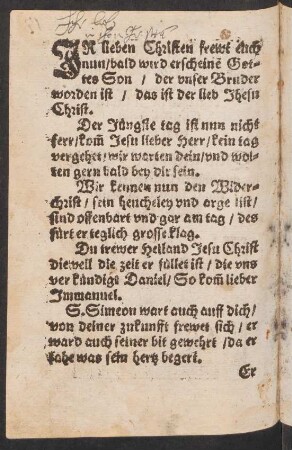 IR lieben Christen frewt euch
nun / bald wird erscheinē Got-
tes Son / der vnser Bruder
worden ist / das ist der lieb Jhesu
Christ.
Der Jüngste tag ist nun nicht
ferr / kom̄ Jesu lieber Herr / kein tag
vergehet / wir warten dein / vnd wol-
ten gern bald bey dir sein.
Wir kennen nun den Wider-
christ / sein heucheley vnd arge list /
sind offenbart vnd gar am tag / des
fürt er teglich grosse klag.
Du trewer Heiland Jesu Christ
dieweil die zeit erfüllet ist / die vns
verkündigt Daniel / So kom̄ lieber
Immanuel.
S. Simeon wart auch auff dich /
von deiner zukunfft frewet sich / er
ward auch seiner bit gewehrt / da er
sahe was sein hertz begert.
Er